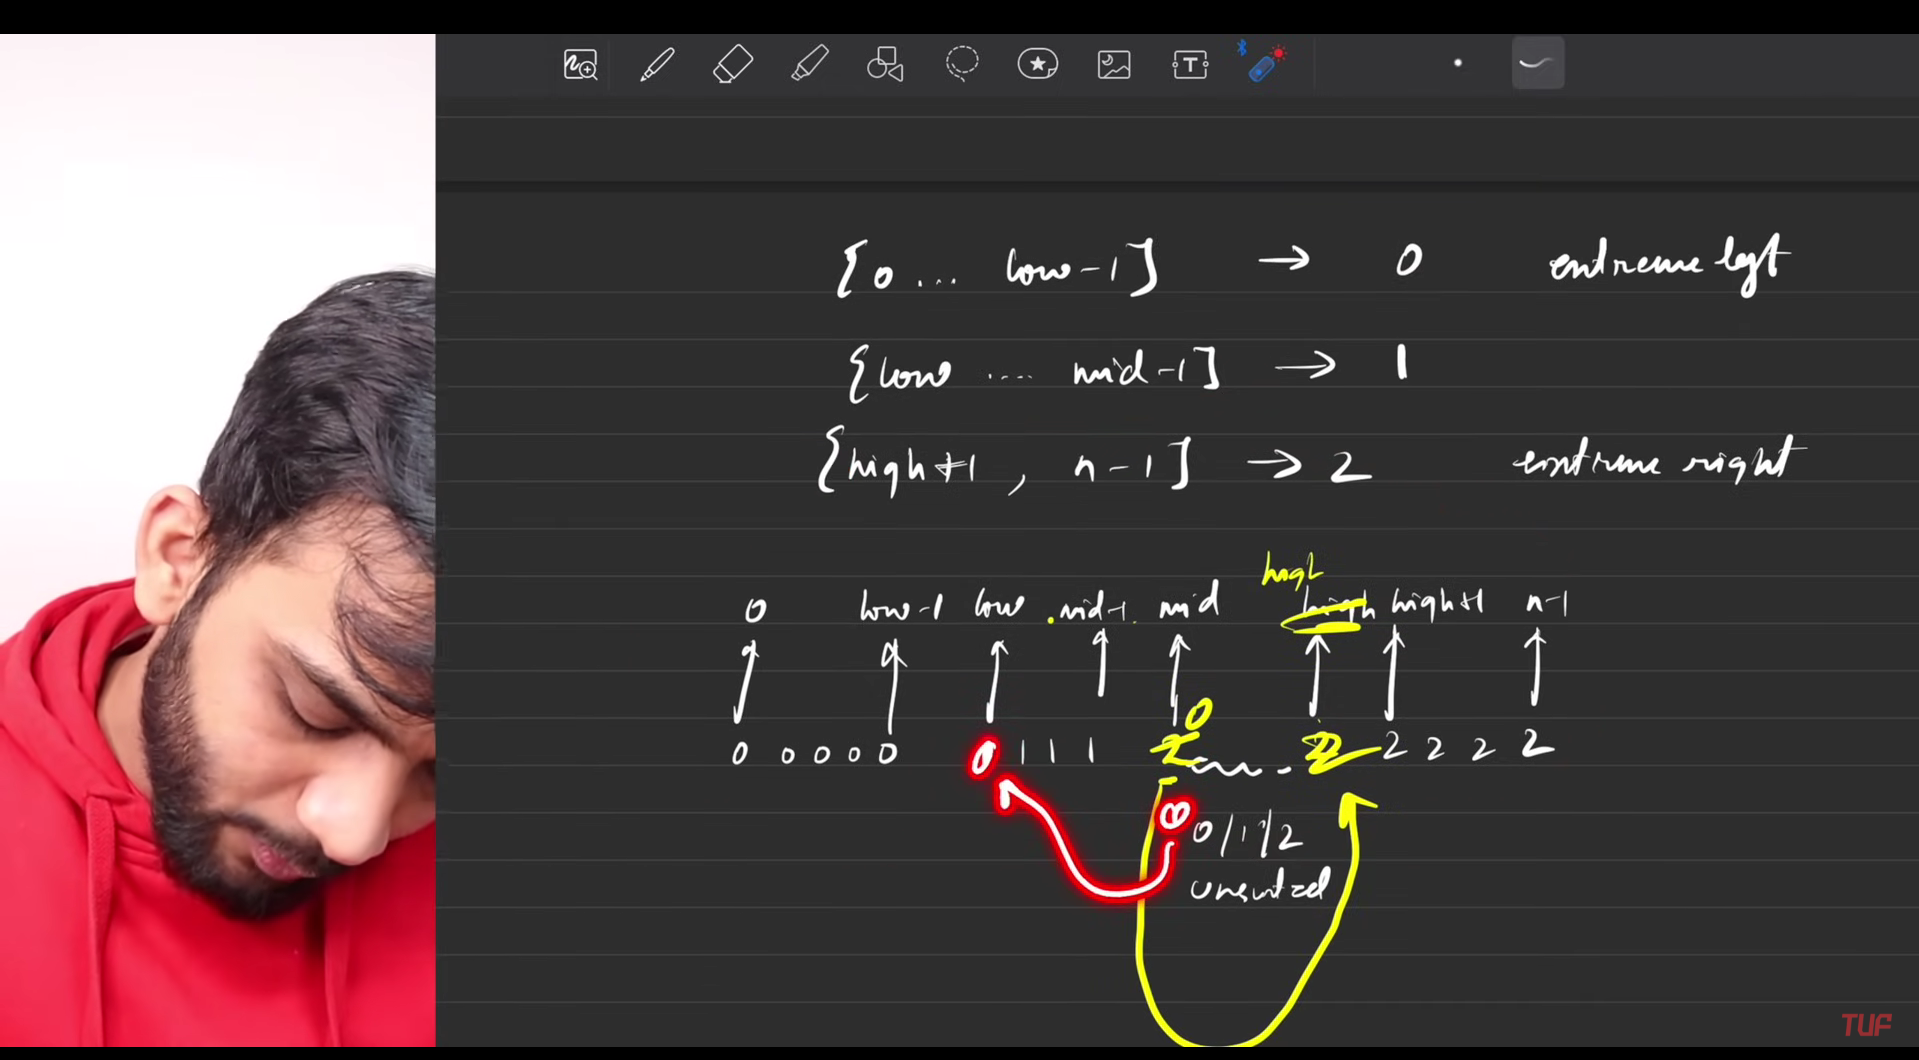 [0 ... low-1] → 0 extreme left
[low .... mid-1] → 1
[high+1 , n-1] → 2 extreme right
high
0 low-1 low mid-1 mid high high+1 n-1
0
0 0 0 0 0 0 1 1 1 2 2 2 2 2 2
0 0/1/2
unsorted
TUF